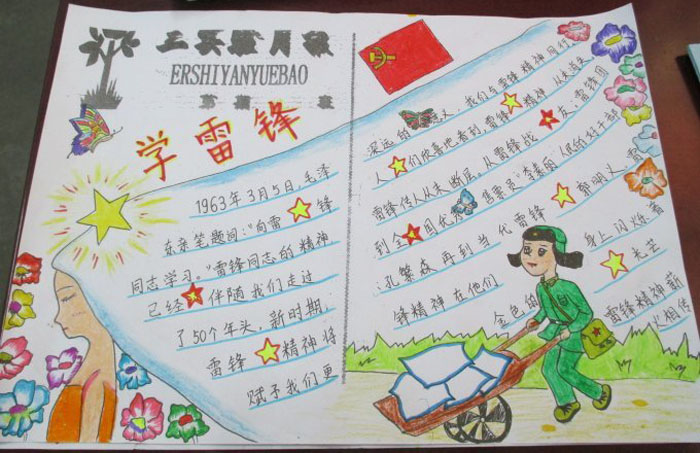 二实验月报
ERSHIYANYUEBAO
第 期 班
学雷锋
1963年3月5日,毛泽
东亲笔题词:"向雷锋
同志学习。"雷锋同志的精神
已经伴随我们走过
了50个年头,新时期,
雷锋精神将
赋予我们更
深远的义,我们与雷锋精神同行,
人们欣喜地看到,雷锋精神,从未消失,
雷锋传人从未断层。从雷锋战友、雷锋团
到全国优 售票员"李素丽"、人民的好干部
:孔繁森再到当代雷锋 郭明义,雷
锋精神在他们 身上闪烁着
金色的 光芒
雷锋精神薪
火相传